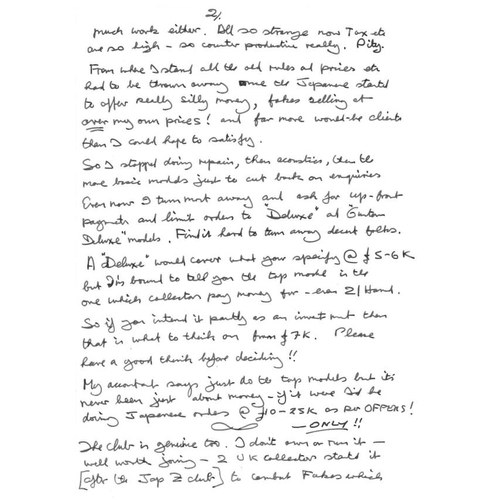 2/.
much work either. All so strange now Tax etc
are so high – so counter productive really. Pity.
From where I stand all the old rules and prices etc
had to be thrown away once the Japanese started
to offer really silly money, fakes selling at
over my own prices! and far more would-be clients
than I could hope to satisfy.
So I stopped doing repairs, then acoustics, then the
more basic models just to cut back on enquiries
Even now I turn most away and ask for up-front
payments and limit orders to "Deluxe" and "Custom
Deluxe" models. Find it hard to turn away decent folks.
A "Deluxe" would cover what you specify @ £5-6K
but I'm bound to tell you the top model is the
one which collectors pay money for – even 2/Hand.
So if you intend it partly as an investment then
that is what to think on from £7K. Please
have a good think before deciding!!
My accountant says just do the top models but it's
never been just about money – if it were I'd be
doing Japanese orders @ £10-25K as per OFFERS!
– ONLY!!
The club is genuine too. I don't own or run it –
well worth joining – 2 UK collectors started it
[after the Jap Z club] to combat Fakes which